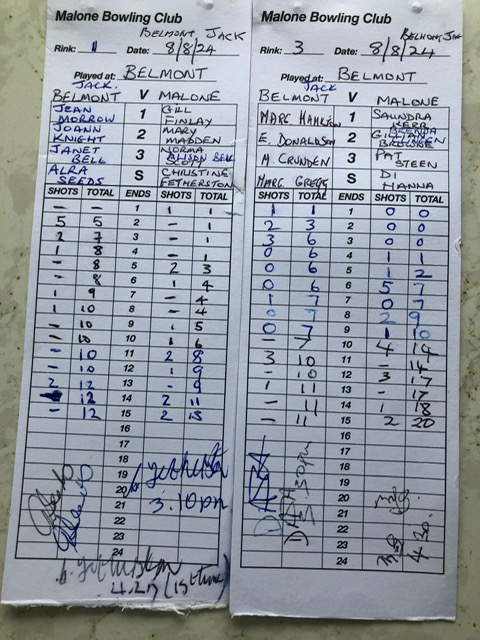 Malone Bowling Club
BELMONT JACK
Rink: 1 Date: 8/8/24
Played at: BELMONT
JACK.
BELMONT V MALONE
JEAN MORROW 1 GILL FINLAY
JOANN KNIGHT 2 MARY MADDEN
JANET BELL 3 NORMA SCOTT ALISON BELL
ALRA SEEDS S CHRISTINE FETHERSTON
SHOTS TOTAL ENDS SHOTS TOTAL
- - 1 1 1
5 5 2 - 1
2 7 3 - 1
1 8 4 - 1
- 8 5 2 3
- 8 6 1 4
1 9 7 - 4
1 10 8 - 4
- 10 9 1 5
- 10 10 1 6
- 10 11 2 8
- 10 12 1 9
2 12 13 - 9
12 14 2 11
- 12 15 2 13
16
17
18
19
20
21
22
23
24
3.10pm
Malone Bowling Club
BELMONT
Rink: 3 Date: 8/8/24
Played at: BELMONT
JACK
BELMONT V MALONE
MARC HAMILTON 1 SAUNDRA KERR
E. DONALDSON 2 GILLIAN
M. CRUNDEN 3 PAT STEEN
MARG. GREGG S DI HANNA
SHOTS TOTAL ENDS SHOTS TOTAL
1 1 1 0 0
2 3 2 0 0
3 6 3 0 0
0 6 4 1 1
0 6 5 1 2
0 6 6 5 7
1 7 7 0 7
0 7 8 2 9
0 7 9 1 10
- 7 10 4 14
3 10 11 - 14
- 10 12 3 17
1 11 13 - 17
- 11 14 1 18
- 11 15 2 20
16
17
18
19
20
21
22
23
24
4.30.